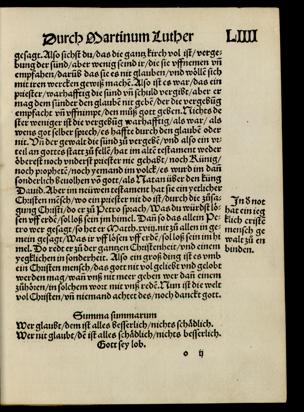 Durch Martinum Luther
LIIII
gesagt. Also sichst du/das die gantz kirch vol ist/vergebung der sünd/aber wenig send ir/die sie vffnemen vn̄
empfahen/darüb das sie es nit glauben/vnd wöllē sich
mit iren wercken gewiß machē. Also ist es war/das ein
priester/warhafftig die sünd vn̄ schuld vergibt/aber er
mag dem sünder den glaubē nit gebē/der die vergebūg
empfacht vn̄ vffnimpt/den müß gott geben. Nichts de
ster weniger ist die vergebūg warhafftig/als war/als
wens got selber sprech/es haffte durch den glaubē oder
nit. Vn̄ der gewalt die sünd zu vergebē/vnd also ein vrteil an gottes statt zu felle/hat im altē testament weder
öberest noch vnderst priester nie gehabt/noch Künig/
noch prophetē/noch yemand im volck/es wurd im dan̄
sonderlich beuolhen vō got/als Natan über den küng
Dauid. Aber im neüwen testamēt hat sie ein yetlicher
Christen mēsch/wo ein priester nit do ist/durch die zusagung Christi/do er zu Petro sprach/Was du würdst lösen vff erdē/so soll es sein im himel. Dan̄ so das allein Petro wer gesagt/so het er Matth.xviij. nit zu allen in gemein gesagt/Was ir vff lösen vff erdē/so soll es sein im himel. Do redt er zu der gantzen Christenheit/vnd einem
yegklichen in sonderheit. Also ein groß ding ist es vmb
ein Christen mensch/das gott nit vol geliebt vnd gelobt
werden mag/wan vnß nit meer geben wer dan̄ einem
zühören/in solchem wort mit vnß redē. Nun ist die welt
vol Christen/vn̄ niemand achtet des/noch danckt gott.
In d not
hat ein ieg
klich criste
mensch ge
walt zu en
binden.
Summa summarum
Wer glaubt/dem ist alles besserlich/nichts schädlich.
Wer nit glaubt/dē ist alles schädlich/nichts besserlich.
Gott sey lob.
o ij